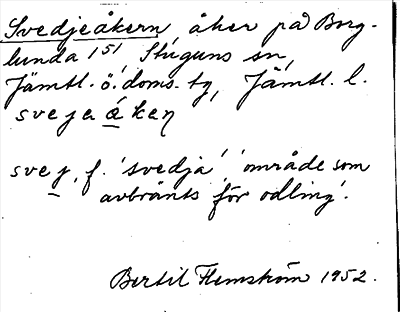 Svedjeåkern, åker på Borg-
lunda 1⁵¹, Stuguns sn,
Jämtl. ö. doms. tg, Jämtl. l.
svejeåkeṇ
svej, f. 'svedja', 'område som
avbränts för odling'.
Bertil Flemström 1952.